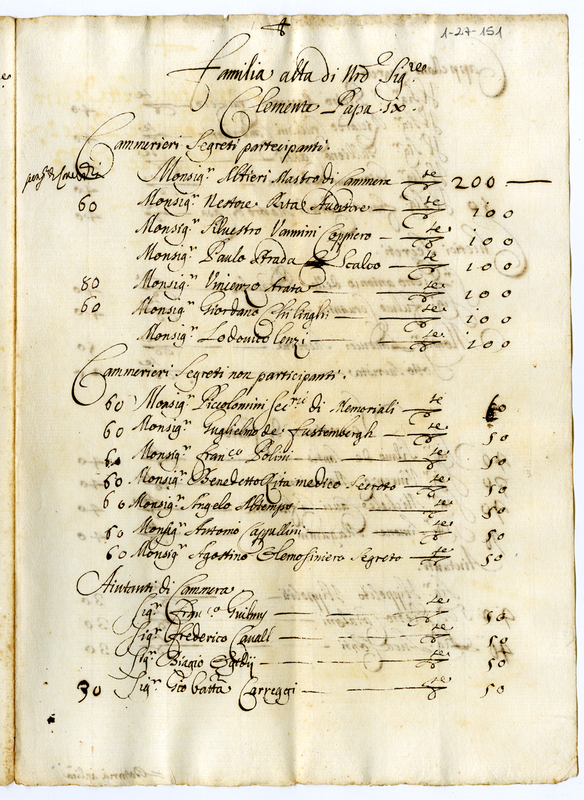 1-27-151
Familia alta di Nrõ Sigre
Clemente Papa IX.
Cammerieri Segreti partecipanti.
Monsigr Altieri Mastro di Cammera — 200 —
60 Monsigr Nestore Rita Auditore — 100
Monsigr Siluestro Vannini Coppiero — 100
Monsigr Paulo Strada Scalco — 100
80 Monsigr Vincenzo Strata — 100
60 Monsigr Giordano Hilinghi — 100
Monsigr Lodouico Lenzi — 100
Cammerieri Segreti non participanti.
60 Monsigr Piccolomini Secrio di Memoriali — 60
60 Monsigr Guglielmo de Fustembergh — 50
Monsigr Franco Polini — 50
60 Monsigr Benedetto Rita medico Secreto — 50
60 Monsigr Angelo Altemps — 50
60 Monsigr Antonio Cappellini — 50
60 Monsigr Agostino Elemosiniero Segreto — 50
Aiutanti di Cammera
Sigr Franco — 50
Sigr Frederico Cauall — 50
Sigr Biagio Egidij — 50
30 Sigr Gio batta Carreggi — 50